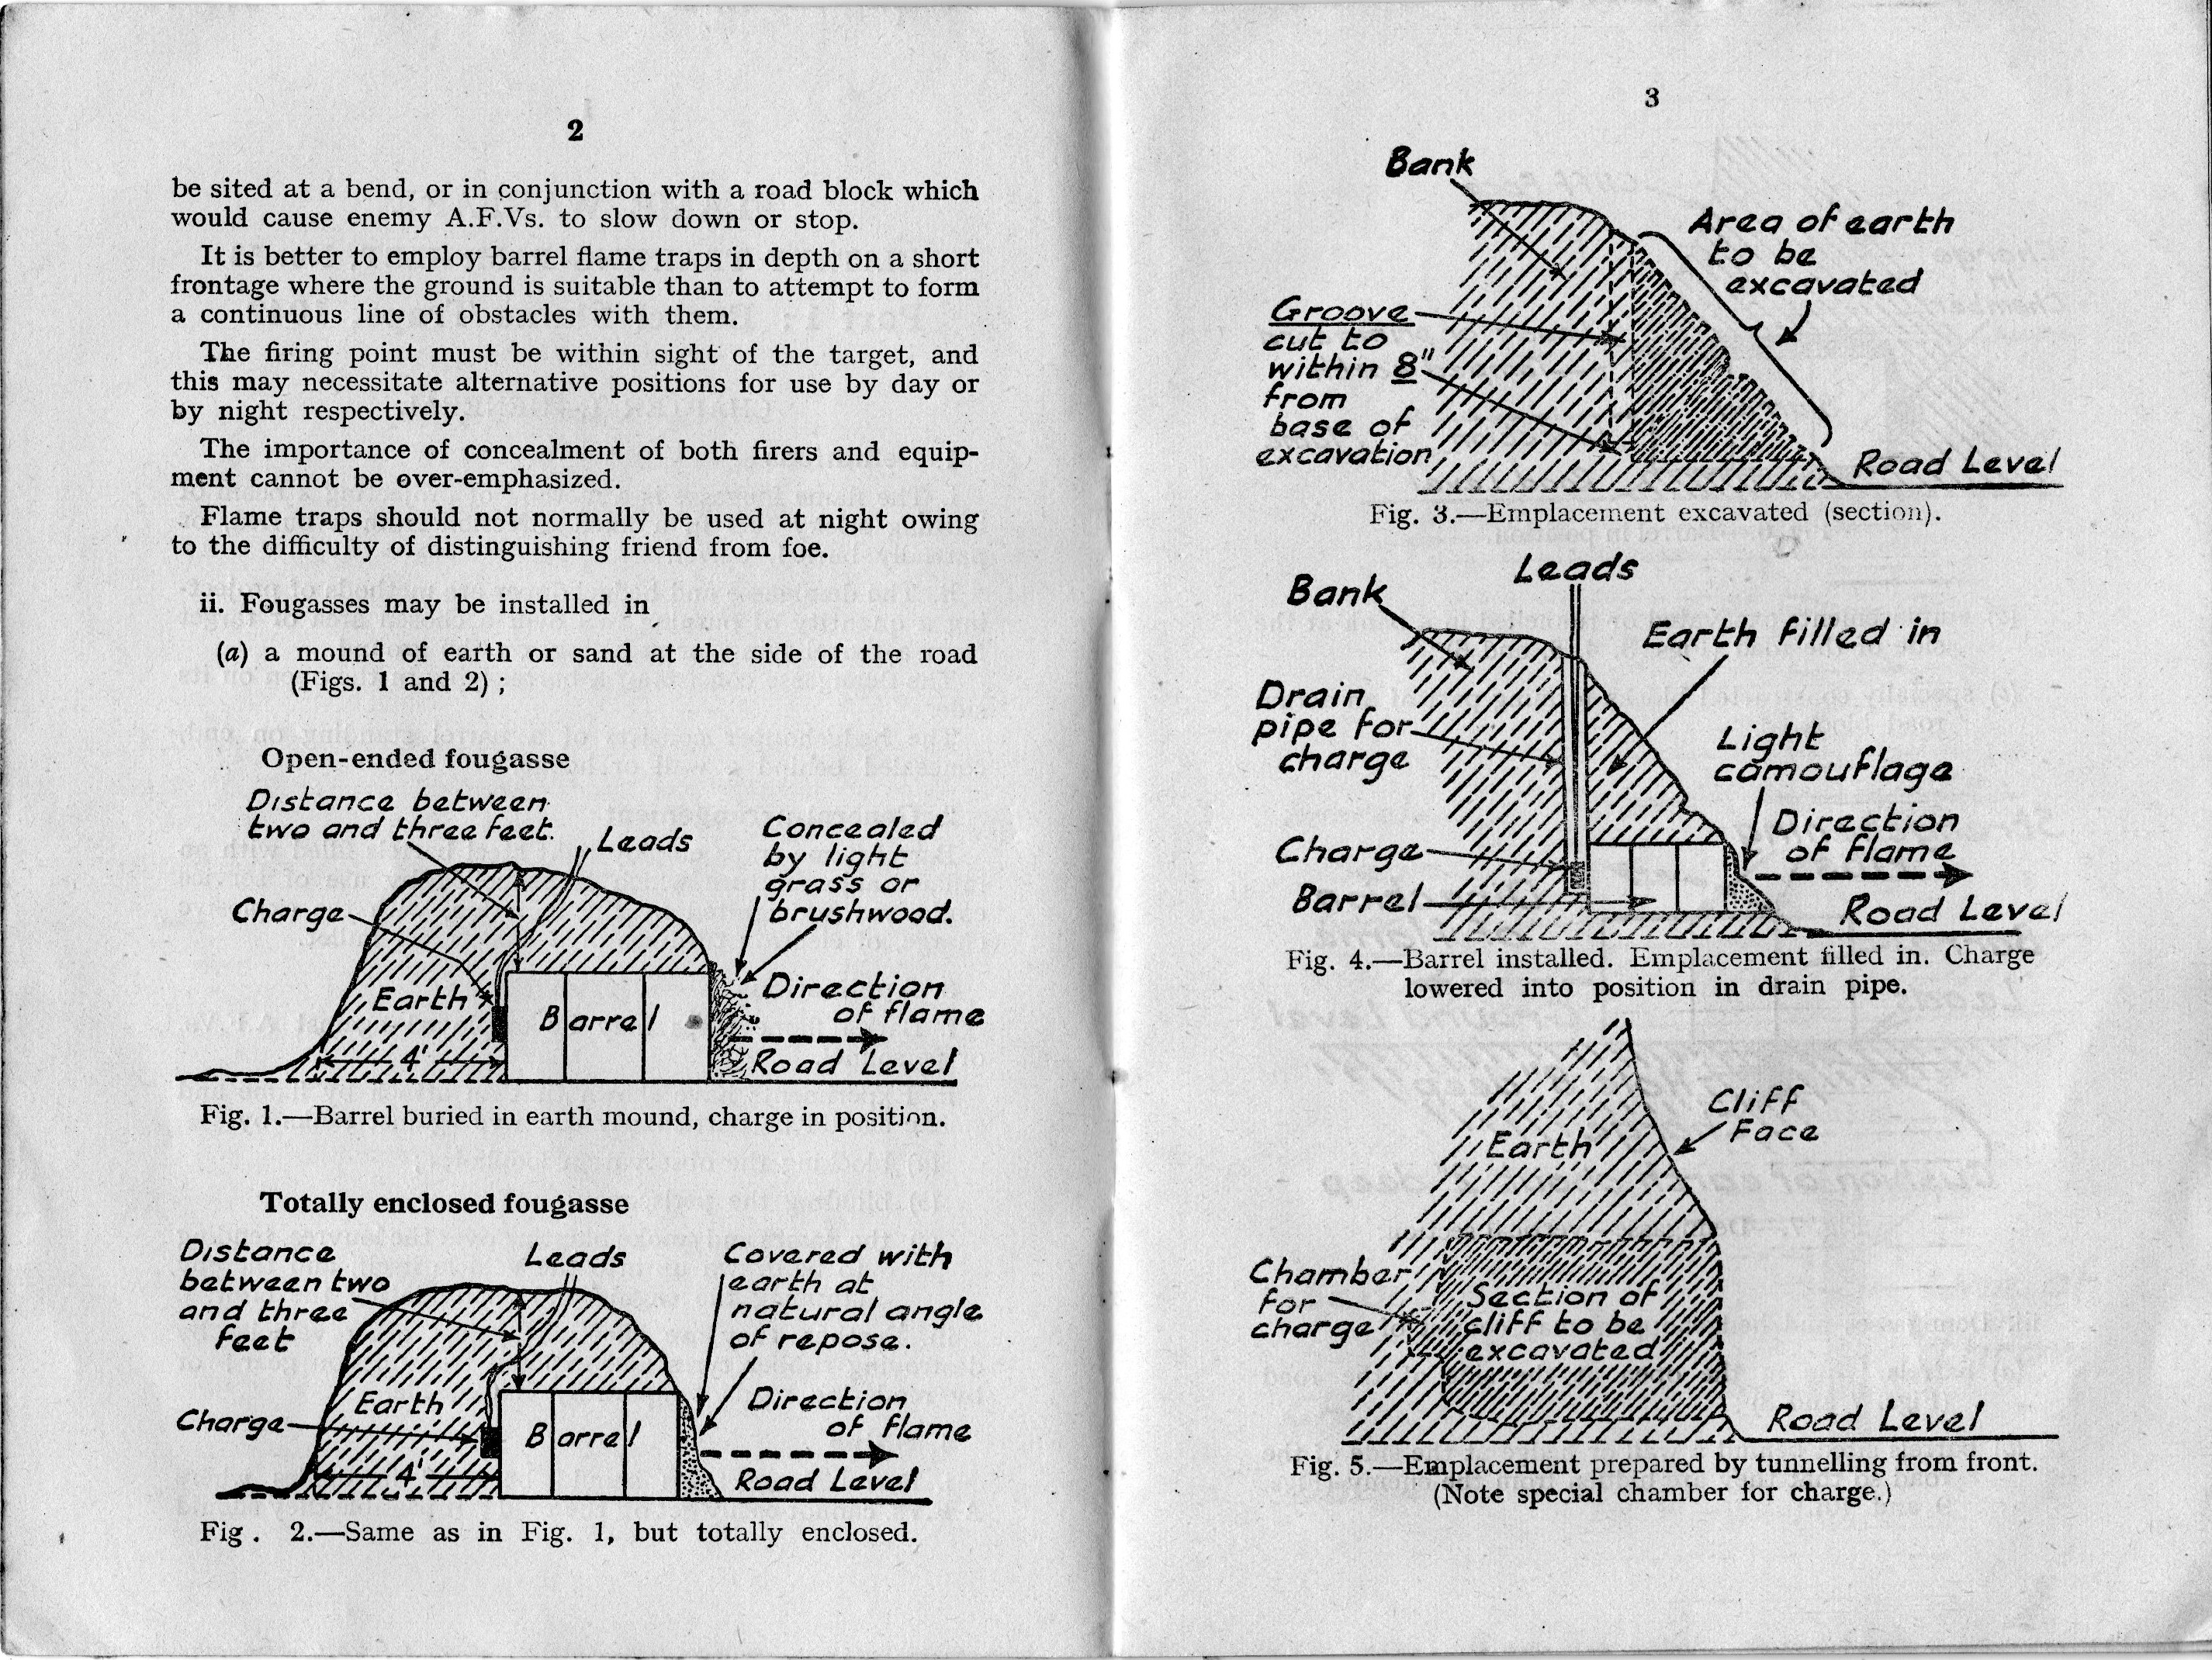 2
be sited at a bend, or in conjunction with a road block which
would cause enemy A.F.Vs. to slow down or stop.
It is better to employ barrel flame traps in depth on a short
frontage where the ground is suitable than to attempt to form
a continuous line of obstacles with them.
The firing point must be within sight of the target, and
this may necessitate alternative positions for use by day or
by night respectively.
The importance of concealment of both firers and equip-
ment cannot be over-emphasized.
Flame traps should not normally be used at night owing
to the difficulty of distinguishing friend from foe.
ii. Fougasses may be installed in
(a) a mound of earth or sand at the side of the road
(Figs. 1 and 2) ;
Open-ended fougasse
Distance between
two and three feet.
Leads
Concealed
by light
grass or
brushwood.
Charge
Earth
Barrel
Direction
of flame
4'
Road Level
Fig. 1.—Barrel buried in earth mound, charge in position.
Totally enclosed fougasse
Distance
between two
and three
feet
Leads
Covered with
earth at
natural angle
of repose.
Charge
Earth
Barrel
Direction
of flame
4'
Road Level
Fig. 2.—Same as in Fig. 1, but totally enclosed.
3
Bank
Area of earth
to be
excavated
Groove
cut to
within 8"
from
base of
excavation
Road Level
Fig. 3.—Emplacement excavated (section).
Leads
Bank
Earth filled in
Drain
pipe for
charge
Light
camouflage
Charge
Direction
of flame
Barrel
Road Level
Fig. 4.—Barrel installed. Emplacement filled in. Charge
lowered into position in drain pipe.
Cliff
Face
Earth
Chamber
for
charge
Section of
cliff to be
excavated
Road Level
Fig. 5.—Emplacement prepared by tunnelling from front.
(Note special chamber for charge.)